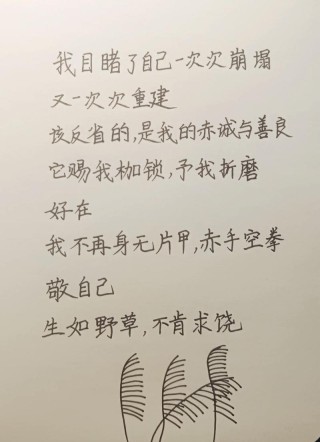 我目睹了自己一次次崩塌
又一次次重建
该反省的,是我的赤诚与善良
它赐我枷锁,予我折磨
好在
我不再身无片甲,赤手空拳
敬自己
生如野草,不肯求饶